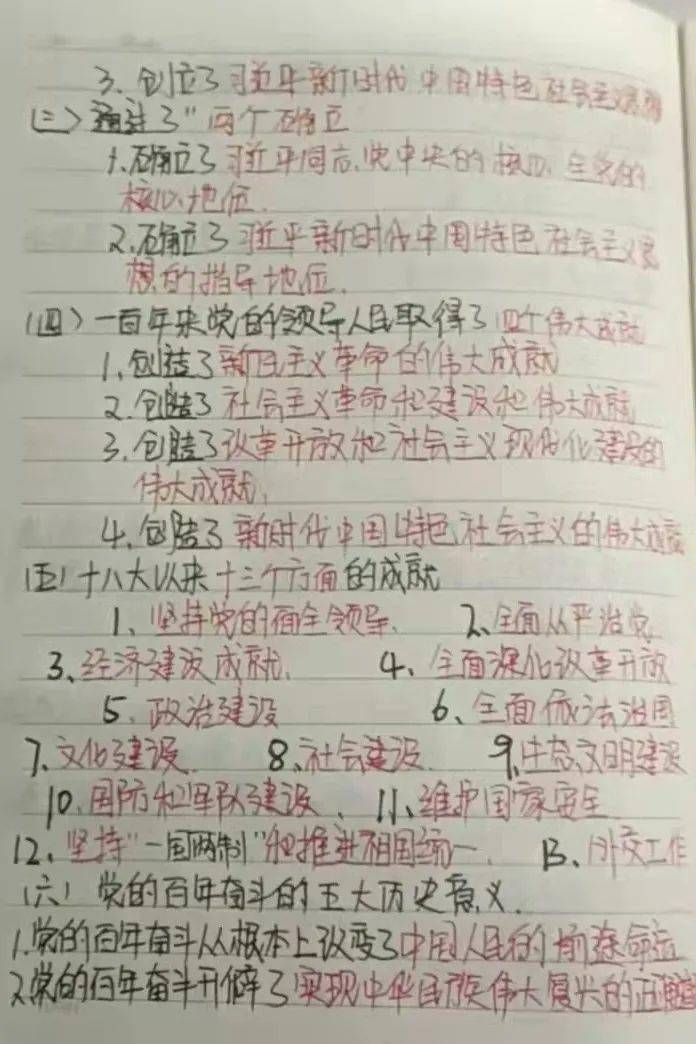 3. 创立了习近平新时代中国特色社会主义思想
(三)通过了"两个确立
1.确立了习近平同志,党中央的核心,全党的
核心地位.
2.确立了习近平新时代中国特色社会主义思
想的指导地位.
(四)一百年来党的领导人民取得了四个伟大成就
1.创造了新民主义革命的伟大成就
2.创造了社会主义革命和建设和伟大成就
3.创造了改革开放和社会主义现代化建设的
伟大成就.
4.创造了新时代中国特色社会主义的伟大成就
(五)十八大以来十三个方面的成就
1、坚持党的面全领导. 2、全面从严治党
3、经济建设成就. 4、全面深化改革开放
5、政治建设 6、全面依法治国
7、文化建设. 8、社会建设 9、生态文明建设
10、国防和军队建设、11、维护国家安全
12、坚持"一国两制"和推进祖国统一. 13、外交工作
(六)党的百年奋斗的五大历史意义.
1.党的百年奋斗从根本上改变了中国人民的前途命运
2.党的百年奋斗开辟了实现中华民族伟大复兴的正确道